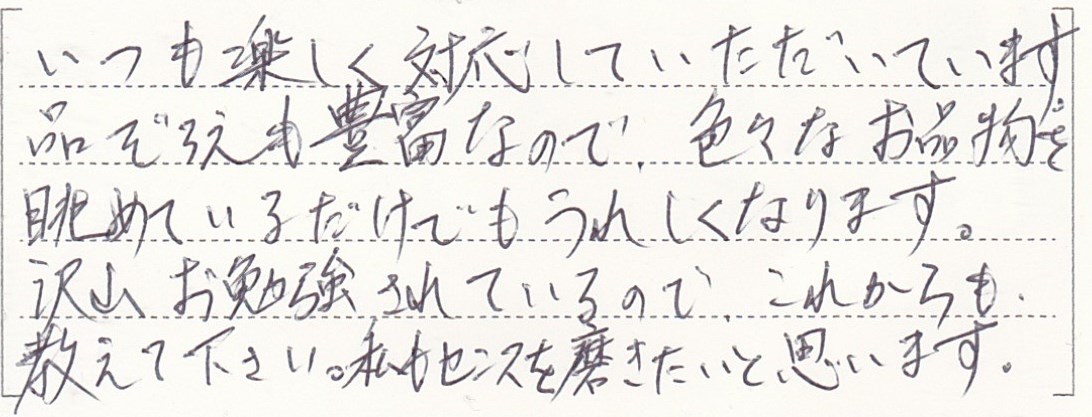 いつも楽しく対応していただいています
品ぞろえも豊富なので、色々なお品物を
眺めているだけでもうれしくなります。
沢山お勉強されているので、これからも
教えて下さい。私もセンスを磨きたいと思います。